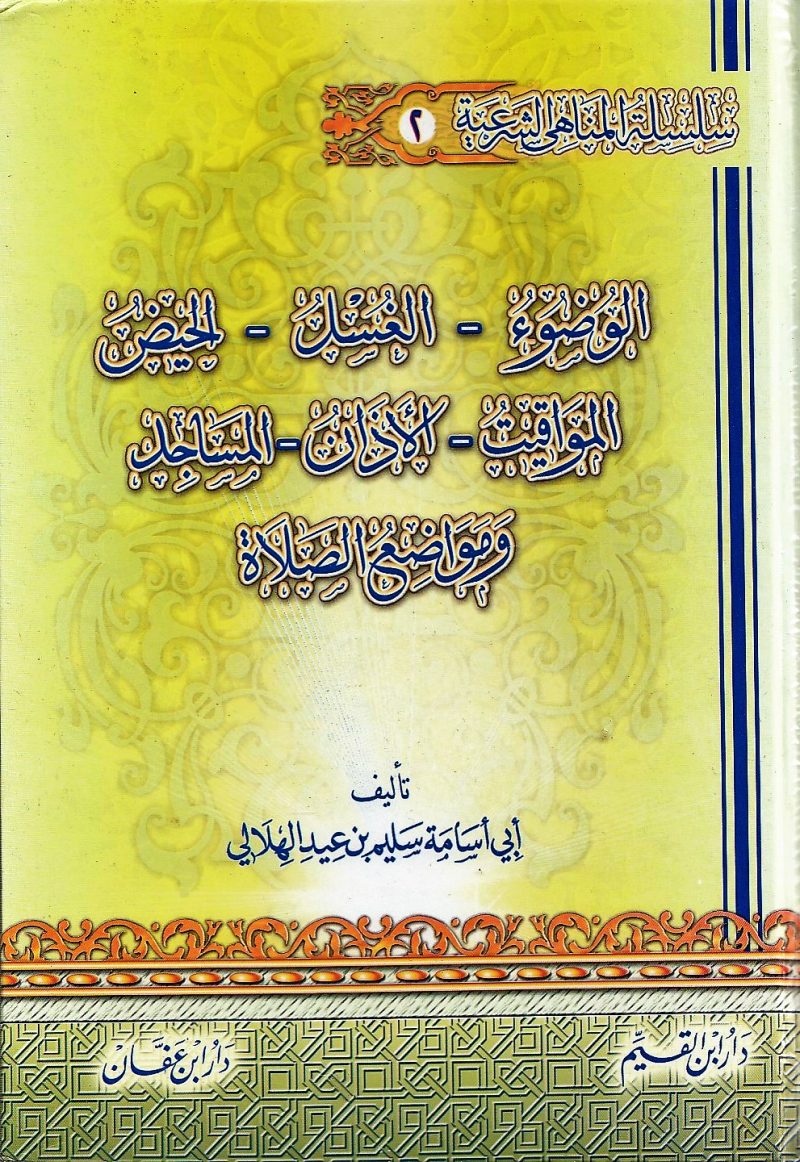 سلسلة المناهي الشرعية ٢
الوُضُوءُ - الغُسْلُ - الحَيْضُ
المَوَاقِيتُ - الأَذَانُ - المَسَاجِدُ
وَمَوَاضِعُ الصَّلَاةِ
تأليف
أبي أسامة سليم بن عيد الهلالي
دَارُ ابْنِ القَيِّم
دَارُ ابْنِ عَفَّانْ